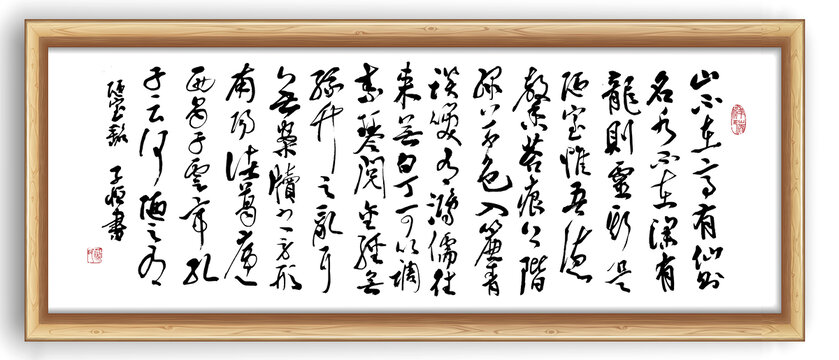 山不在高有仙则
名水不在深有
龍則靈斯是
陋室惟吾德
馨苔痕上階
緑草色入簾青
談笑有鴻儒往
来無白丁可以調
素琴閲金經無
絲竹之亂耳
無案牘之勞形
南陽諸葛廬
西蜀子雲亭孔
子云何陋之有
陋室銘 子 書